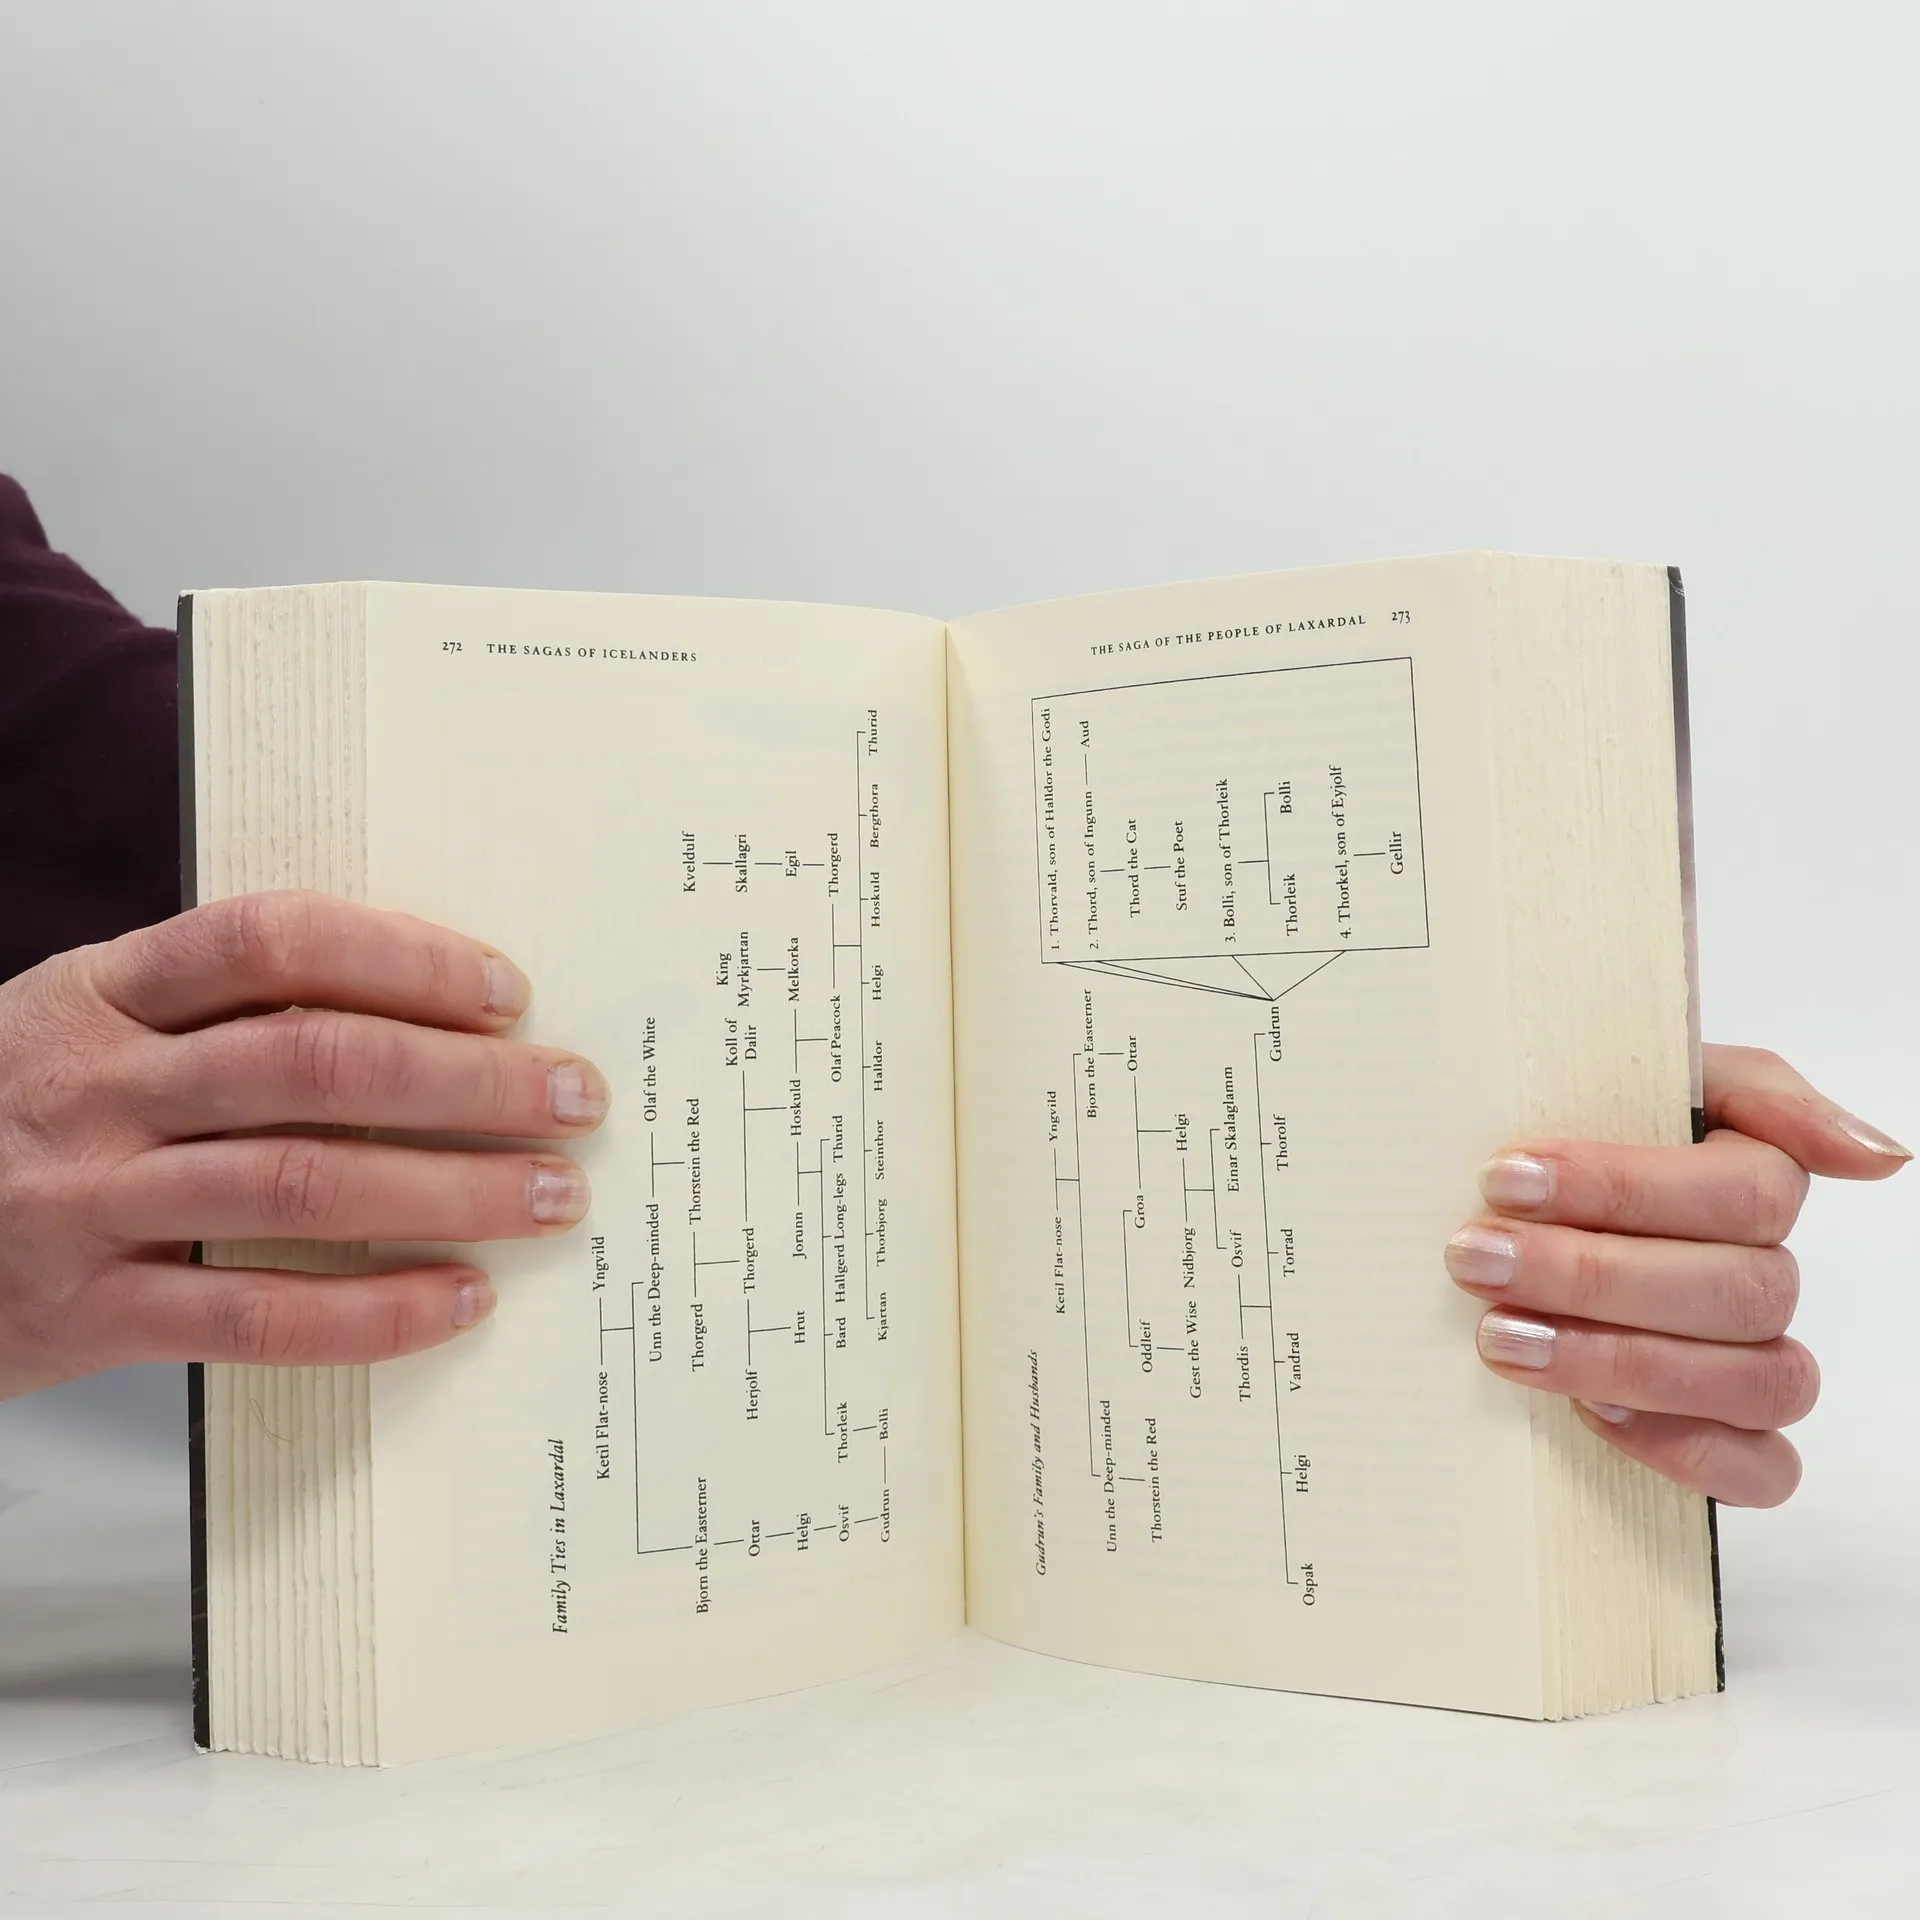 272 THE SAGAS OF ICELANDERS
Family Ties in Laxardal
Ketil Flat-nose Yngvild
Unn the Deep-minded Olaf the White
Bjorn the Easterner Thorgerd Thorstein the Red Kveldulf
King
Koll of Myrkjartan Skallagri
Ottar Herjolf Thorgerd Dalir
Helgi Hrut Jorunn Hoskuld Melkorka Egil
Osvif Thorleik Bard Hallgerd Long-legs Thurid Olaf Peacock Thorgerd
Gudrun Bolli Kjartan Thorbjorg Steinthor Halldor Helgi Hoskuld Bergthora Thurid
THE SAGA OF THE PEOPLE OF LAXARDAL 273
Gudrun's Family and Husbands
Ketil Flat-nose Yngvild
Unn the Deep-minded Bjorn the Easterner
Thorstein the Red Oddleif Groa Ottar
Gest the Wise Nidbjorg Helgi
Thordis Osvif Einar Skalaglamm
Ospak Helgi Vandrad Torrad Thorolf Gudrun
1. Thorvald, son of Halldor the Godi
2. Thord, son of Ingunn Aud
Thord the Cat
Stuf the Poet
3. Bolli, son of Thorleik
Thorleik Bolli
4. Thorkel, son of Eyjolf
Gellir